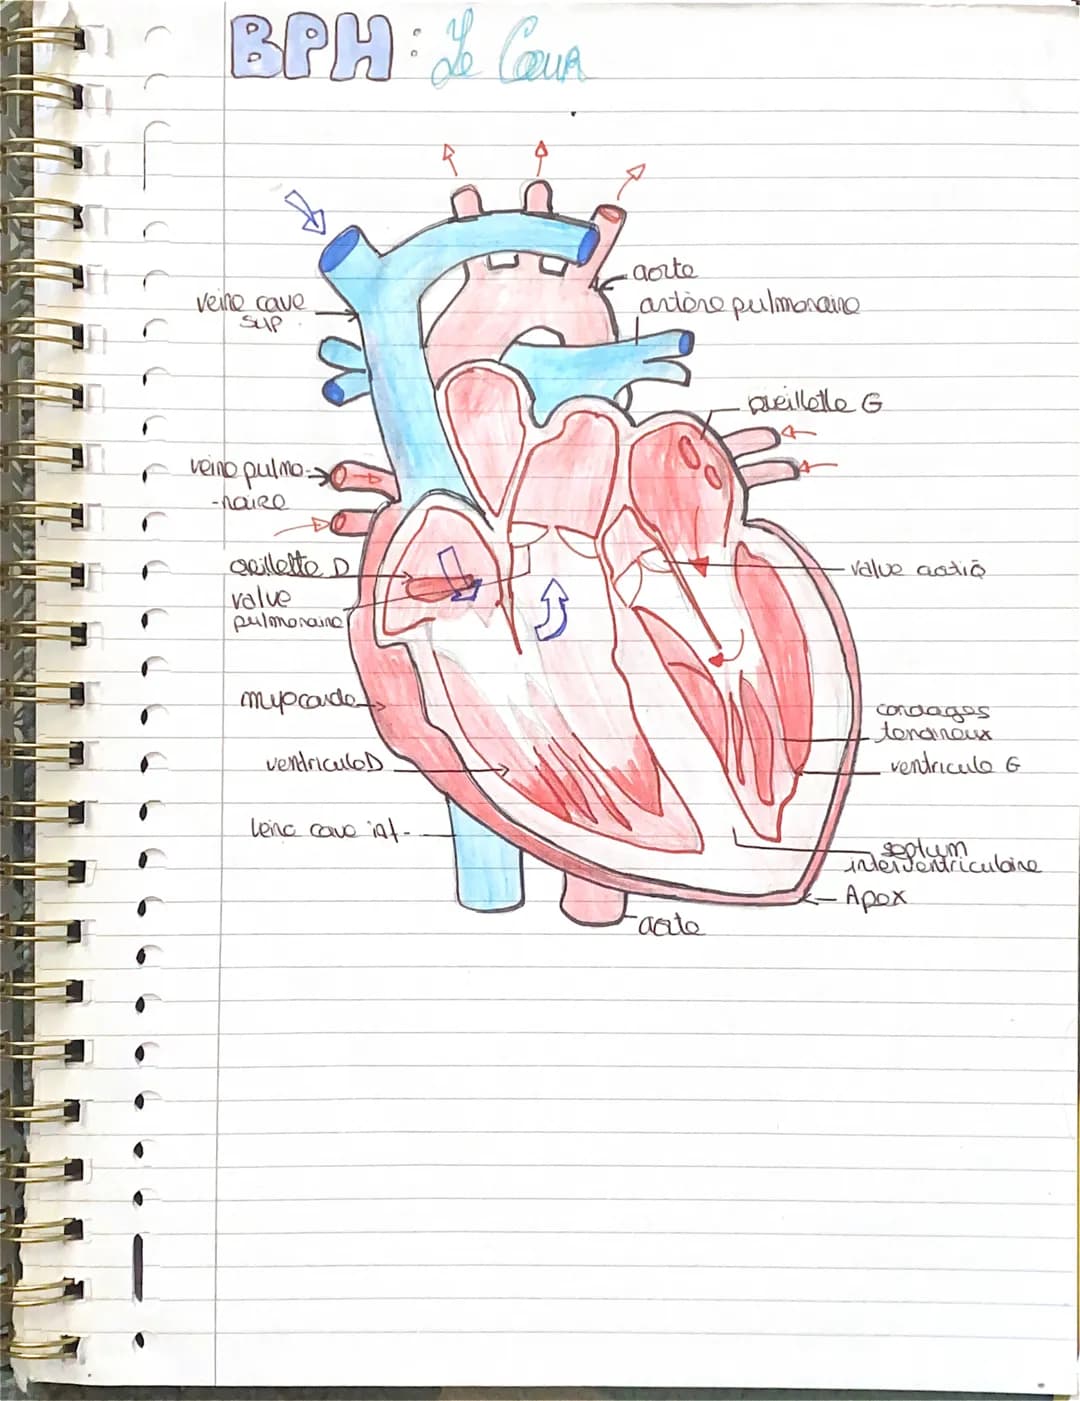 BPH : Le Cœur
aorte
artère pulmonaire
veine cave
sup.
oreillette G
veine pulmo-
-naire
oreillette D
valve aortiq
valve
pulmonaire
myocarde
cordages
tendineux
ventricule D
ventricule G
veine cave inf.
septum
interventriculaire
Apex
aorte